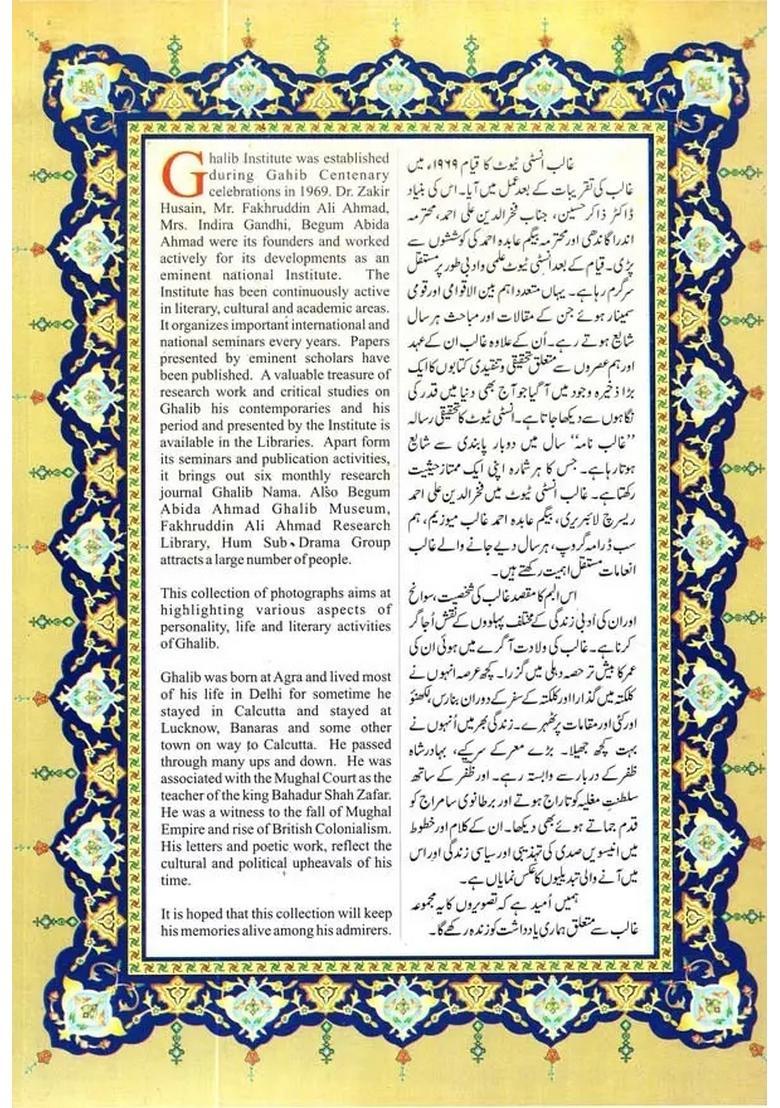 Ghalib Institute was established
during Gahib Centenary
celebrations in 1969. Dr. Zakir
Husain, Mr. Fakhruddin Ali Ahmad,
Mrs. Indira Gandhi, Begum Abida
Ahmad were its founders and worked
actively for its developments as an
eminent national Institute. The
Institute has been continuously active
in literary, cultural and academic areas.
It organizes important international and
national seminars every years. Papers
presented by eminent scholars have
been published. A valuable treasure of
research work and critical studies on
Ghalib his contemporaries and his
period and presented by the Institute is
available in the Libraries. Apart form
its seminars and publication activities,
it brings out six monthly research
journal Ghalib Nama. Also Begum
Abida Ahmad Ghalib Museum,
Fakhruddin Ali Ahmad Research
Library, Hum Sub Drama Group
attracts a large number of people.
This collection of photographs aims at
highlighting various aspects of
personality, life and literary activities
of Ghalib.
Ghalib was born at Agra and lived most
of his life in Delhi for sometime he
stayed in Calcutta and stayed at
Lucknow, Banaras and some other
town on way to Calcutta. He passed
through many ups and down. He was
associated with the Mughal Court as the
teacher of the king Bahadur Shah Zafar.
He was a witness to the fall of Mughal
Empire and rise of British Colonialism.
His letters and poetic work, reflect the
cultural and political upheavals of his
time.
It is hoped that this collection will keep
his memories alive among his admirers.
غالب انسٹی ٹیوٹ کا قیام ۱۹۶۹ء میں
غالب کی تقریبات کے بعد عمل میں آیا۔ اس کی بنیاد
ڈاکٹر ذاکر حسین، جناب فخرالدین علی احمد، محترمہ
اندرا گاندھی اور محترمہ بیگم عابدہ احمد کی کوششوں سے
پڑی۔ قیام کے بعد انسٹی ٹیوٹ علمی و ادبی طور پر مستقل
سرگرم رہا ہے۔ یہاں متعدد اہم بین الاقوامی اور قومی
سمینار ہوئے جن کے مقالات اور مباحث ہر سال
شایع ہوتے رہے۔ اُن کے علاوہ غالب ان کے عہد
اور ہم عصروں سے متعلق تحقیقی و تنقیدی کتابوں کا ایک
بڑا ذخیرہ وجود میں آ گیا جو آج بھی دنیا میں قدر کی
نگاہوں سے دیکھا جاتا ہے۔ انسٹی ٹیوٹ کا تحقیقی رسالہ
”غالب نامہ“ سال میں دوبار پابندی سے شایع
ہوتا رہا ہے۔ جس کا ہر شمارہ اپنی ایک ممتاز حیثیت
رکھتا ہے۔ غالب انسٹی ٹیوٹ میں فخرالدین علی احمد
ریسرچ لائبریری، بیگم عابدہ احمد غالب میوزیم، ہم
سب ڈرامہ گروپ، ہر سال دیے جانے والے غالب
انعامات مستقل اہمیت رکھتے ہیں۔
اس البم کا مقصد غالب کی شخصیت، سوانح
اور ان کی ادبی زندگی کے مختلف پہلووں کے نقش اُجاگر
کرنا ہے۔ غالب کی ولادت آگرے میں ہوئی ان کی
عمر کا بیش تر حصہ دہلی میں گزرا۔ کچھ عرصہ انہوں نے
کلکتہ میں گذارا اور کلکتہ کے سفر کے دوران بنارس، لکھنؤ
اور کئی اور مقامات پر ٹھہرے۔ زندگی بھر میں اُنہوں نے
بہت کچھ جھیلا۔ بڑے معرکے سر کیے، بہادر شاہ
ظفر کے دربار سے وابستہ رہے۔ اور ظفر کے ساتھ
سلطنتِ مغلیہ کو تاراج ہوتے اور برطانوی سامراج کو
قدم جماتے ہوئے بھی دیکھا۔ ان کے کلام اور خطوط
میں انیسویں صدی کی تہذیبی اور سیاسی زندگی اور اس
میں آنے والی تبدیلیوں کا عکس نمایاں ہے۔
ہمیں اُمید ہے کہ تصویروں کا یہ مجموعہ
غالب سے متعلق ہماری یادداشت کو زندہ رکھے گا۔